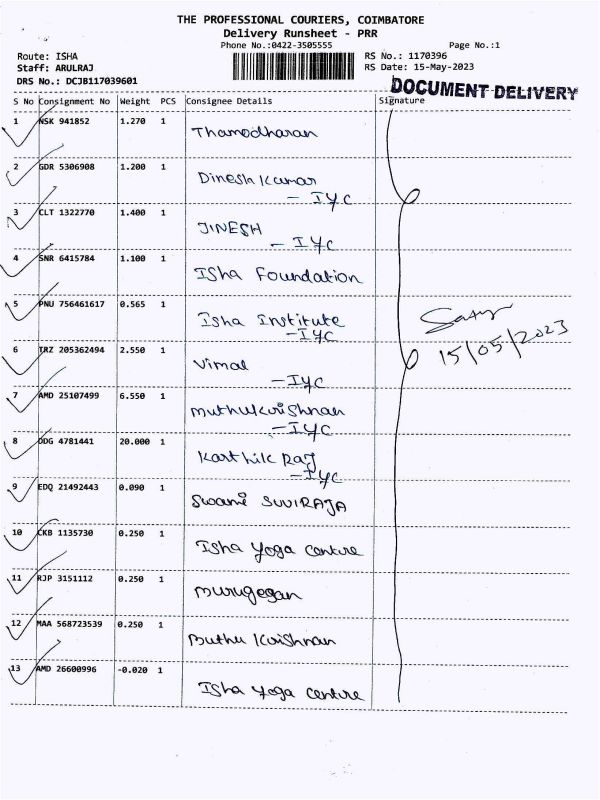 THE PROFESSIONAL COURIERS, COIMBATORE
Delivery Runsheet - PRR
Phone No.:0422-3505555 Page No.:1
Route: ISHA RS No.: 1170396
Staff: ARULRAJ RS Date: 15-May-2023
DRS No.: DCJB117039601
DOCUMENT DELIVERY
S No Consignment No Weight PCS Consignee Details Signature
1 NSK 941852 1.270 1 Thamodharan
2 GDR 5306908 1.200 1 Dinesh Kumar
- IYC
3 CLT 1322770 1.400 1 JINESH
- IYC
4 SNR 6415784 1.100 1 Isha Foundation
5 PNU 756461617 0.565 1 Isha Institute
- IYC
6 TRZ 205362494 2.550 1 Vimal
- IYC
Satyr
15/05/2023
7 AMD 25107499 6.550 1 muthukrishnan
- IYC
8 DDG 4781441 20.000 1 Karthik Raj
- IYC
9 EDQ 21492443 0.090 1 Swami SUVIRAJA
10 CKB 1135730 0.250 1 Isha Yoga centure
11 RJP 3151112 0.250 1 murugegan
12 MAA 568723539 0.250 1 muthu Krishnan
13 AMD 26600996 -0.020 1 Isha Yoga centure